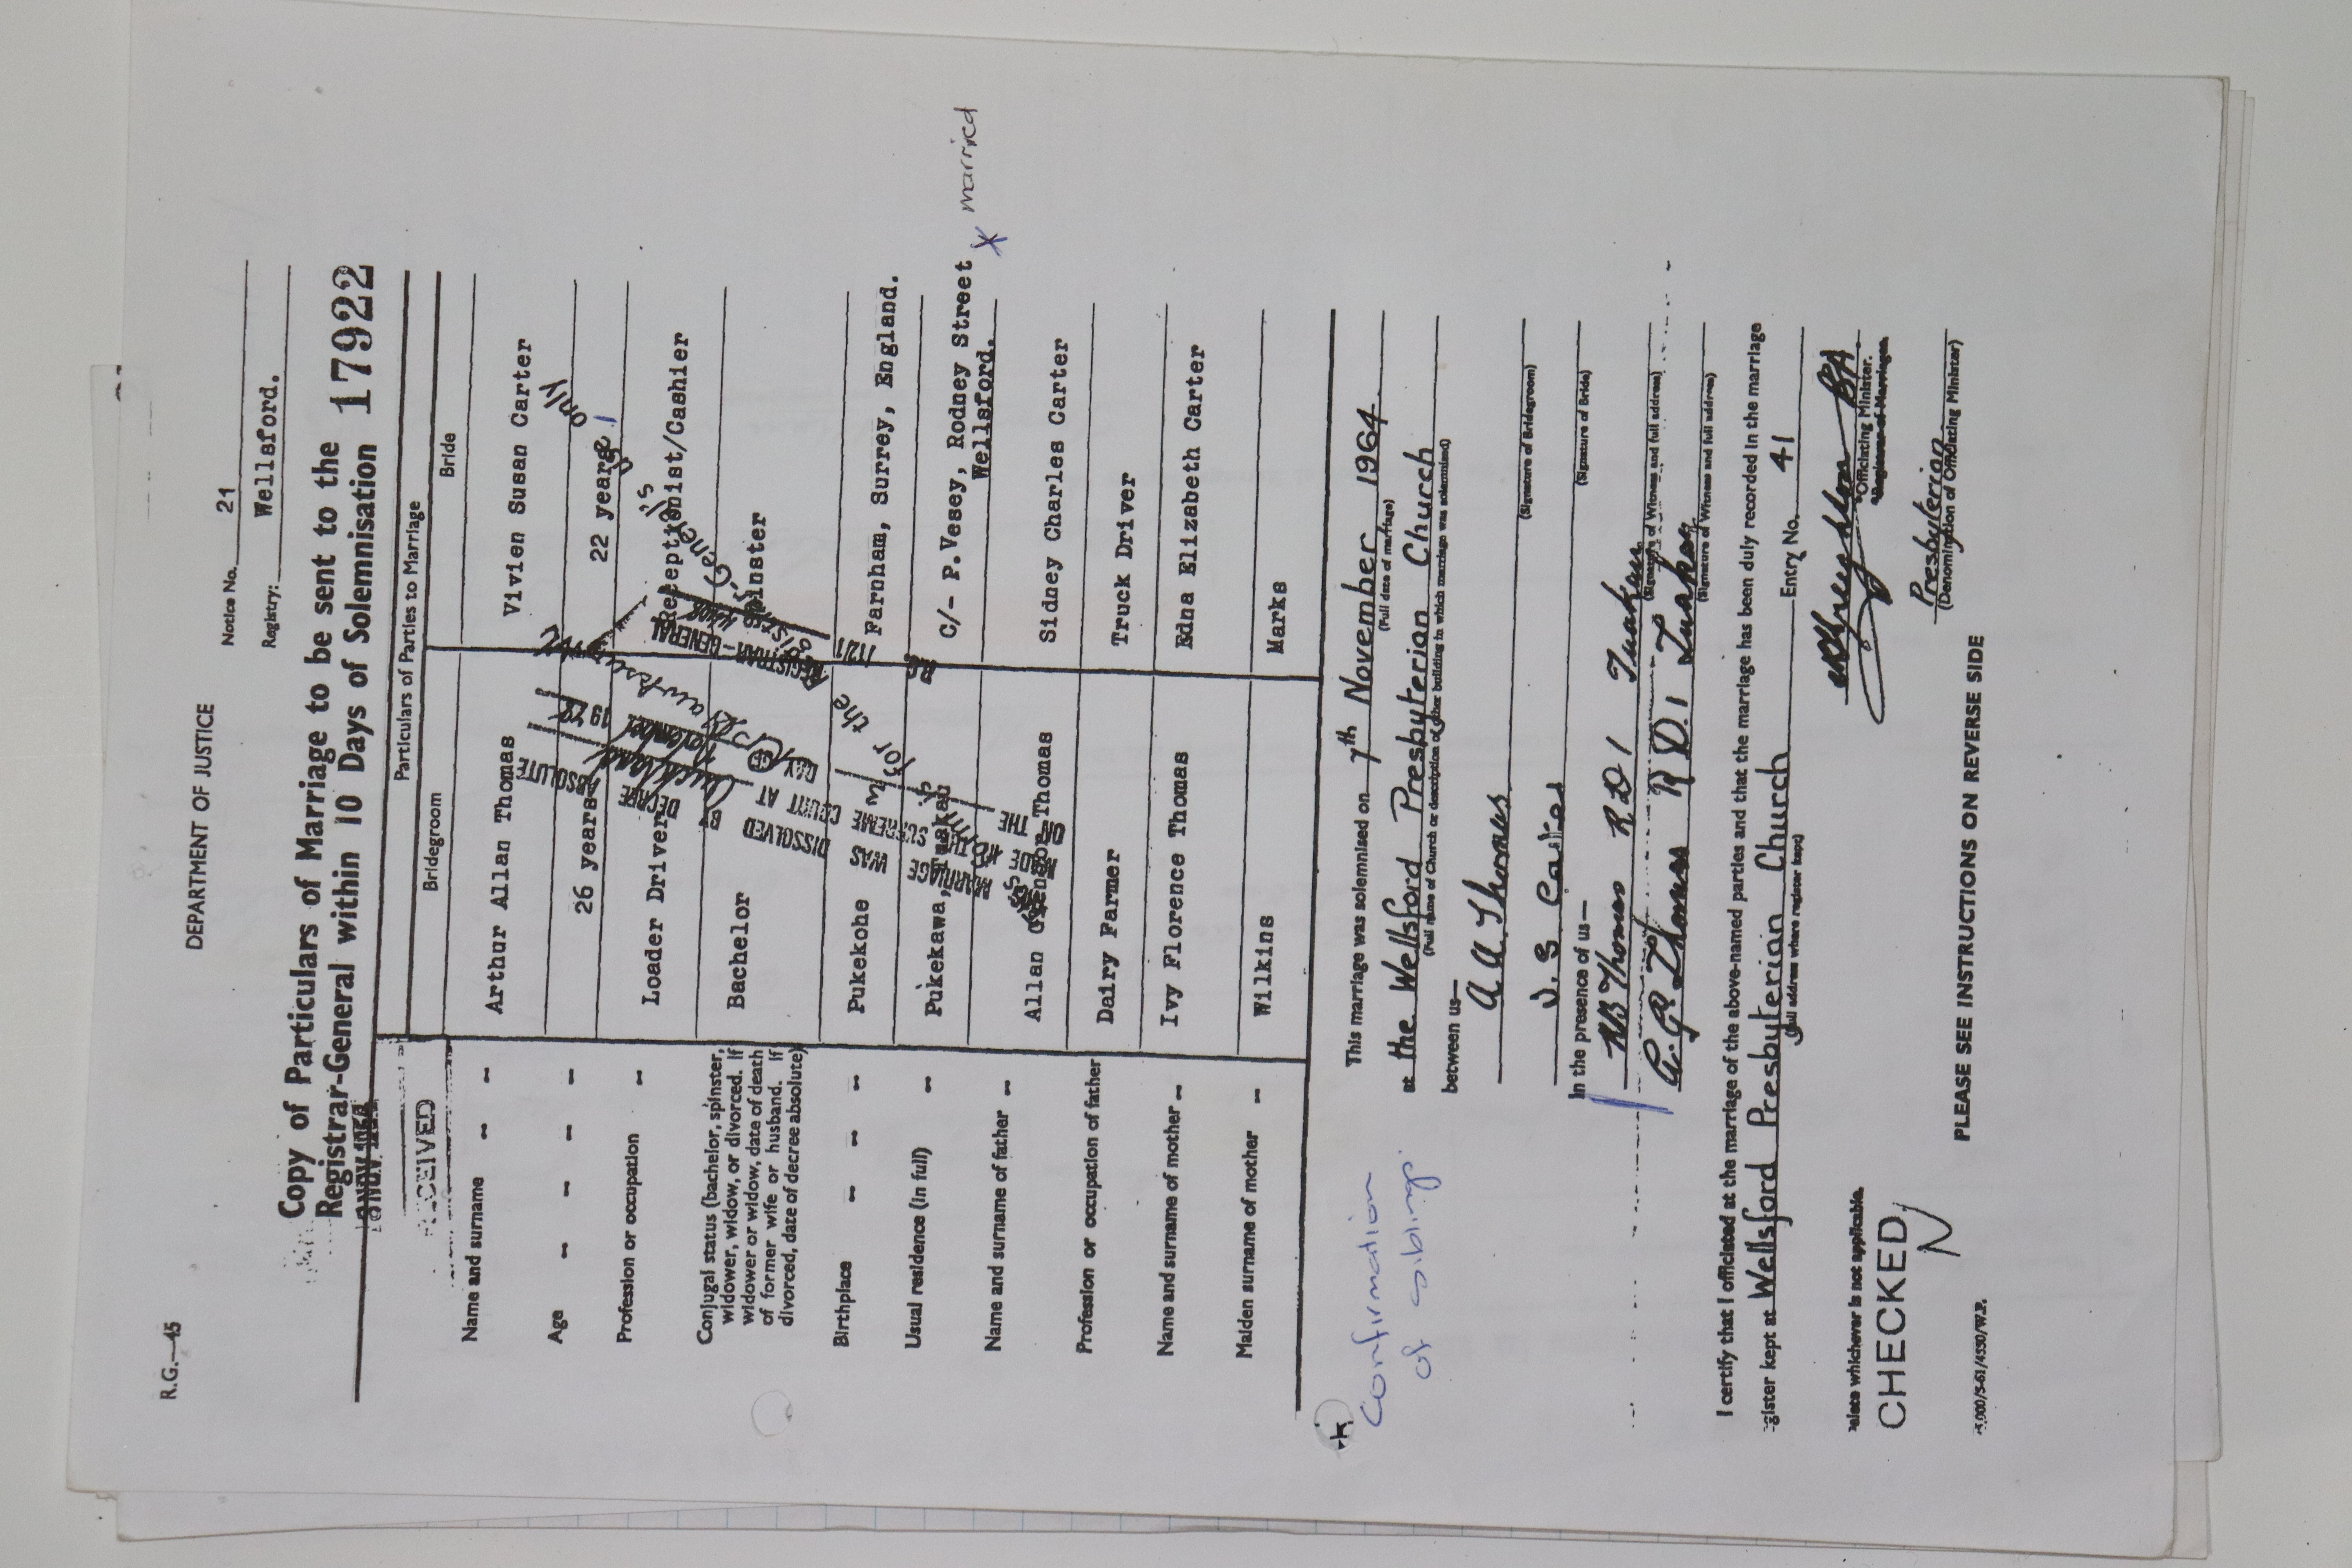 R.G.—45
DEPARTMENT OF JUSTICE
Notice No. 21
Registry: Wellsford.
Copy of Particulars of Marriage to be sent to the
Registrar-General within 10 Days of Solemnisation 17922
RECEIVED
Particulars of Parties to Marriage
Bridegroom
Bride
Name and surname -- -- Arthur Allan Thomas Vivien Susan Carter
Age -- -- -- -- 26 years 22 years
only
Profession or occupation -- Loader Driver Receptionist/Cashier
Conjugal status (bachelor, spinster,
widower, widow, or divorced. If
widower or widow, date of death
of former wife or husband. If
divorced, date of decree absolute)
Bachelor Spinster
Birthplace -- -- -- Pukekohe Farnham, Surrey, England.
Usual residence (in full) -- Pukekawa, Tuakau C/- P.Vesey, Rodney Street
Wellsford.
X married
Name and surname of father -- Allan Thomas Sidney Charles Carter
Profession or occupation of father Dairy Farmer Truck Driver
Name and surname of mother -- Ivy Florence Thomas Edna Elizabeth Carter
Maiden surname of mother -- Wilkins Marks
MARRIAGE WAS DISSOLVED BY DECREE ABSOLUTE
OF THE SUPREME COURT AT
DAY
REGISTRAR-GENERAL
for the
This marriage was solemnised on 7th November 1964
(Full date of marriage)
at the Wellsford Presbyterian Church
(Full name of Church or description of other building in which marriage was solemnised)
between us—
A A Thomas
(Signature of Bridegroom)
V. S Carter
(Signature of Bride)
In the presence of us—
Thomas R D 1 Tuakau
(Signature of Witness and full address)
Thomas R D. 1 Tuakau
(Signature of Witness and full address)
Confirmation
of siblings.
I certify that I officiated at the marriage of the above-named parties and that the marriage has been duly recorded in the marriage
register kept at Wellsford Presbyterian Church Entry No. 41
(full address where register kept)
*Officiating Minister.
*Registrar of Marriages.
Presbyterian
(Denomination of Officiating Minister)
whichever is not applicable.
CHECKED
PLEASE SEE INSTRUCTIONS ON REVERSE SIDE